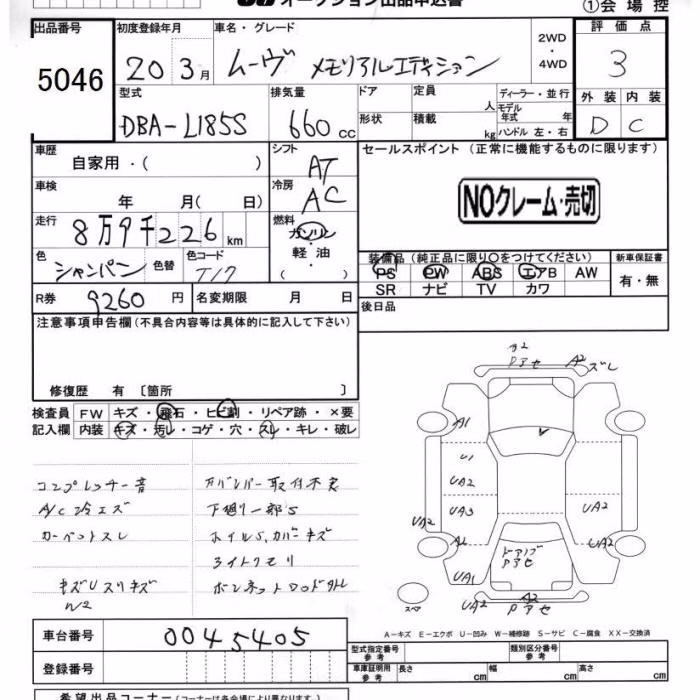 オークション出品申込書 ①会場控
出品番号 初度登録年月 車名・グレード 2WD・4WD 評価点
5046 20 3月 ムーヴ メモリアルエディション 3
型式 排気量 ドア 定員 人 ディーラー・並行 外装 内装
DBA-L185S 660cc 形状 積載 kg モデル年式 年 ハンドル 左・右 D C
車歴 シフト セールスポイント(正常に機能するものに限ります)
自家用・( ) AT
車検 冷房 NOクレーム・売切
年 月( 日) AC
走行 燃料
8万9千226km ガソリン・軽油・( )
色 色替 色コード 装備品(純正品に限り○をつけてください) 新車保証書
シャンパン T17 PS PW ABS エアB AW 有・無
R券 9260円 名変期限 月 日 SR ナビ TV カワ
注意事項申告欄(不具合内容等は具体的に記入して下さい) 後日品
修復歴 有 〔箇所 〕
検査員 FW キズ・飛石・ヒビ割・リペア跡・×要
記入欄 内装 キズ・汚レ・コゲ・穴・スレ・キレ・破レ
コンプレッサー音
A/C冷エズ
カーペットスレ
キズUスリキズ
W2
Fバンパー取付不良
下廻り一部S
ホイルS、カバーキズ
ライトクモリ
A2
Pアセ A2 ズレ
A1
U1
UA2
UA3 UA2
UA2
A2 UA2
ドアノブ
Pアセ
UA1
UA2 A2
Pアセ
スペア
A-キズ E-エクボ U-凹み W-補修跡 S-サビ C-腐食 XX-交換済
車台番号 0045405
登録番号
型式指定番号 参考 類別区分番号 参考
車庫証明用 参考 長さ cm 幅 cm 高さ cm
希望出品コーナー(コーナーは各会場により異なります。)